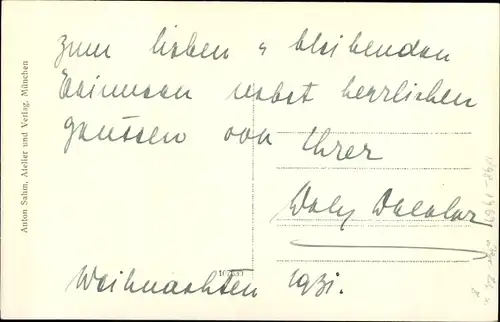 zum lieben u bleibenden
Erinnern nebst herzlichen
grüssen von Ihrer
Weihnachten 1931.
Anton Sahm, Atelier und Verlag, München